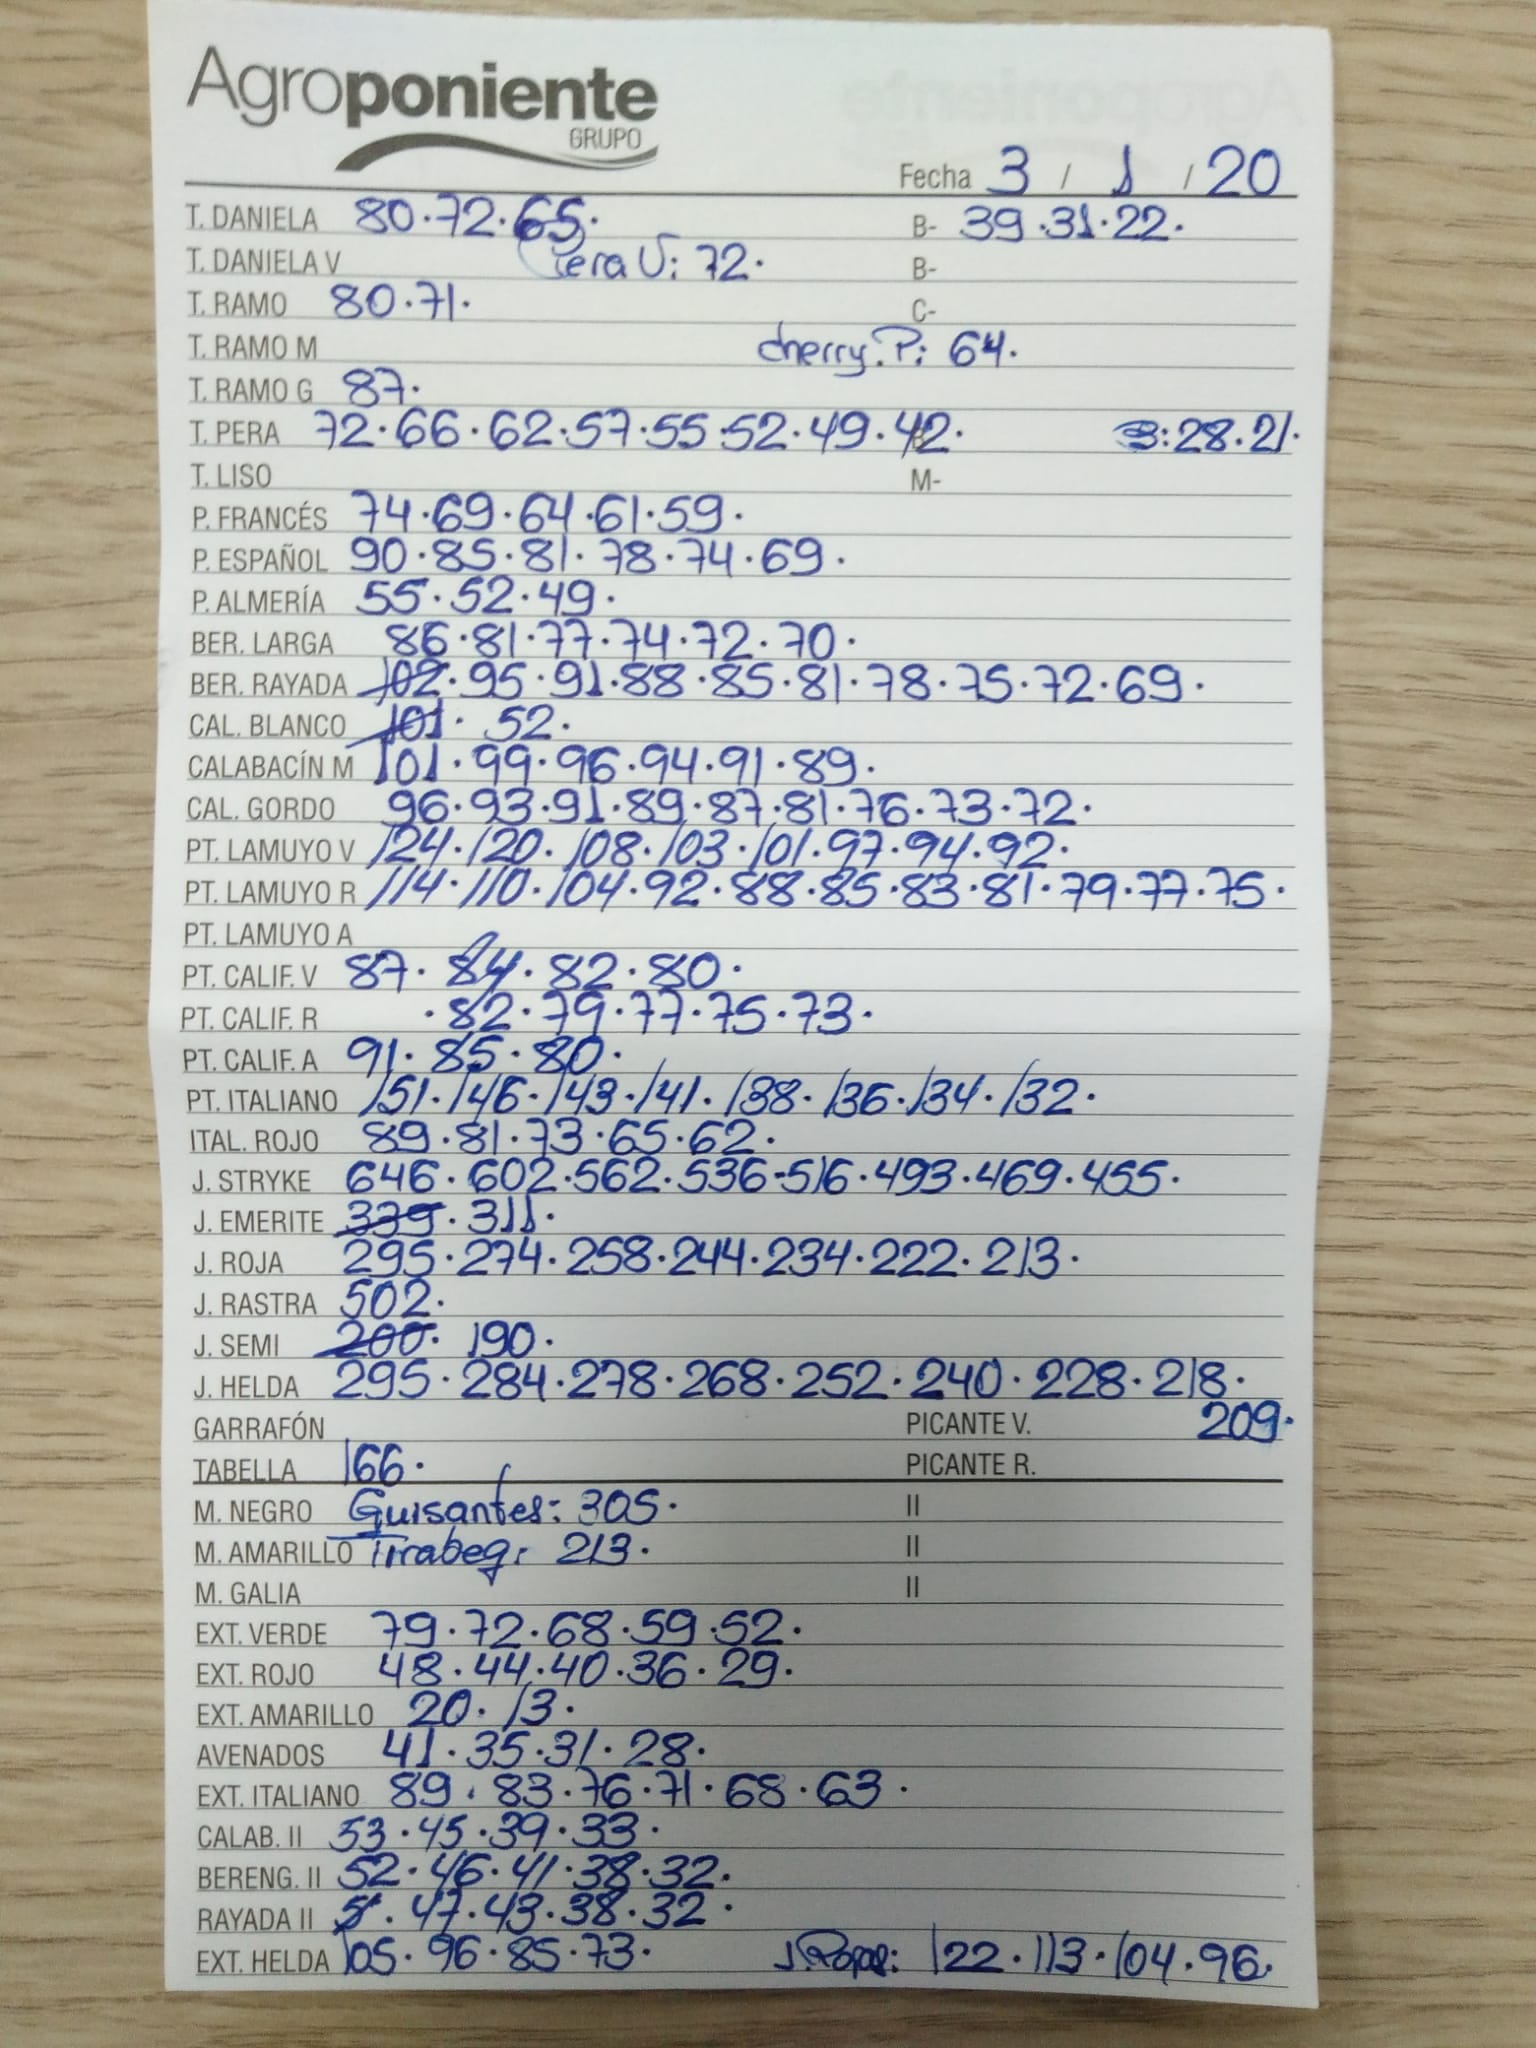 Agroponiente
GRUPO
Fecha 3 / 1 / 20
T. DANIELA 80.72.65. B- 39.31.22.
T. DANIELA V Pera V: 72. B-
T. RAMO 80.71. C-
T. RAMO M cherry.P: 64.
T. RAMO G 87.
T. PERA 72.66.62.57.55.52.49.42. B:28.21.
T. LISO M-
P. FRANCÉS 74.69.64.61.59.
P. ESPAÑOL 90.85.81.78.74.69.
P. ALMERÍA 55.52.49.
BER. LARGA 86.81.77.74.72.70.
BER. RAYADA 102.95.91.88.85.81.78.75.72.69.
CAL. BLANCO 101. 52.
CALABACÍN M 101.99.96.94.91.89.
CAL. GORDO 96.93.91.89.87.81.76.73.72.
PT. LAMUYO V 124.120.108.103.101.97.94.92.
PT. LAMUYO R 114.110.104.92.88.85.83.81.79.77.75.
PT. LAMUYO A
PT. CALIF. V 87.84.82.80.
PT. CALIF. R .82.79.77.75.73.
PT. CALIF. A 91.85.80.
PT. ITALIANO 151.146.143.141.138.136.134.132.
ITAL. ROJO 89.81.73.65.62.
J. STRYKE 646.602.562.536.516.493.469.455.
J. EMERITE 339.311.
J. ROJA 295.274.258.244.234.222.213.
J. RASTRA 502.
J. SEMI 200. 190.
J. HELDA 295.284.278.268.252.240.228.218.
GARRAFÓN PICANTE V. 209.
TABELLA 166. PICANTE R.
M. NEGRO Guisantes: 305. II
M. AMARILLO Tirabeq: 213. II
M. GALIA II
EXT. VERDE 79.72.68.59.52.
EXT. ROJO 48.44.40.36.29.
EXT. AMARILLO 20.13.
AVENADOS 41.35.31.28.
EXT. ITALIANO 89.83.76.71.68.63.
CALAB. II 53.45.39.33.
BERENG. II 52.46.41.38.32.
RAYADA II . 47.43.38.32.
EXT. HELDA 105.96.85.73. 122.113.104.96.